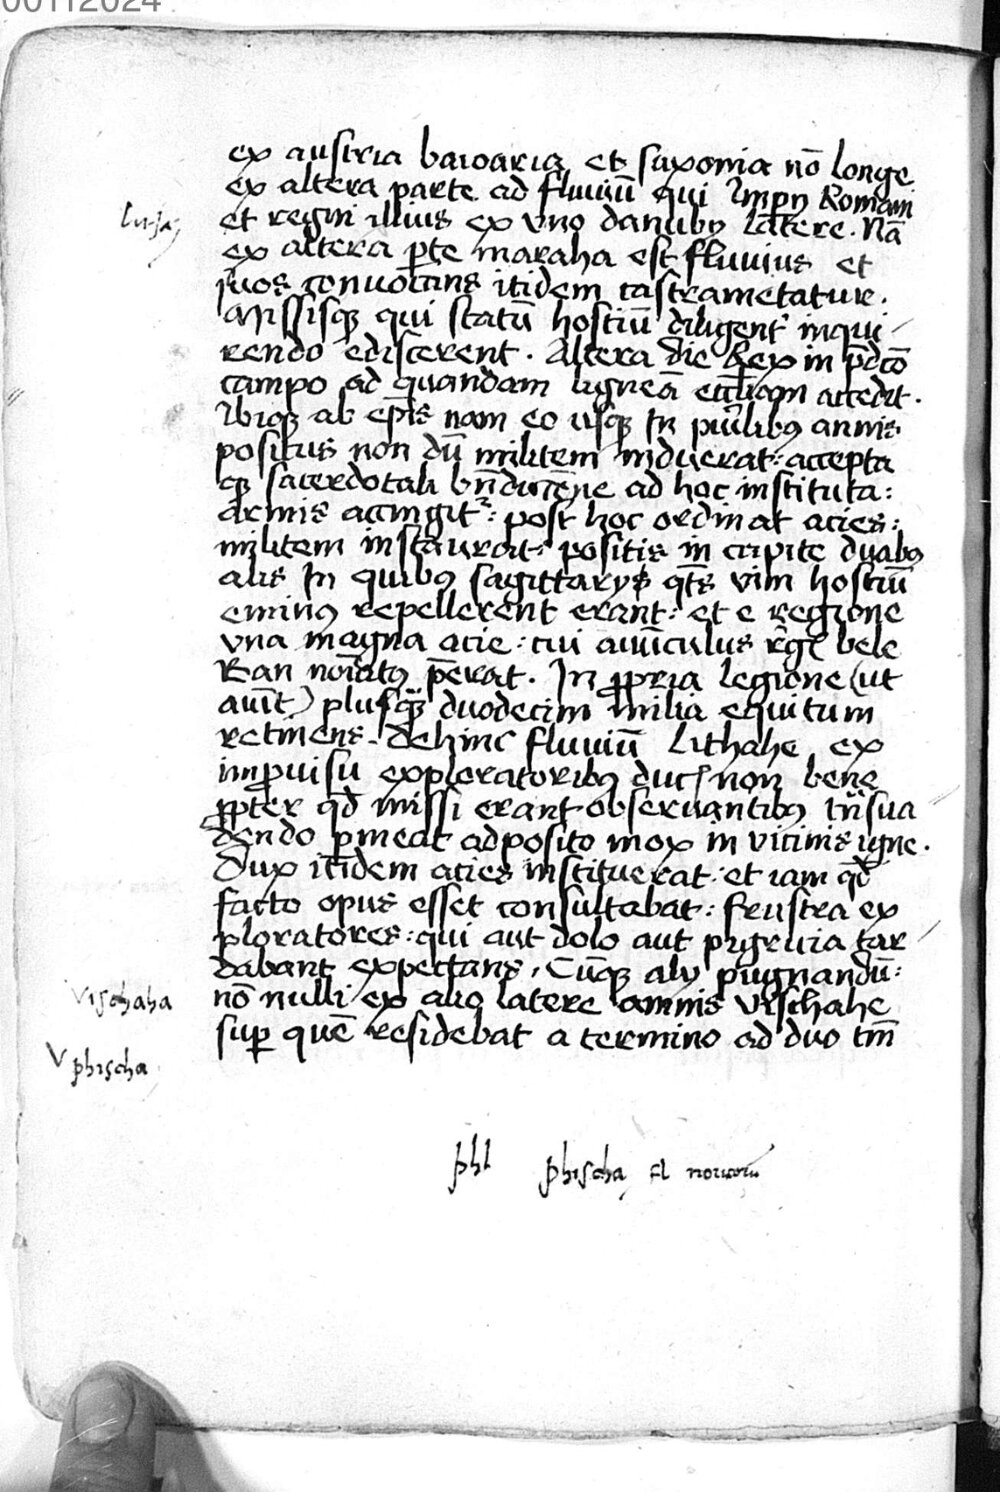 00112024
ex austria baioaria et saxonia nō longe
ex altera parte ad fluviū qui Impij Romani
et regni illius ex uno danubij latere. Nā
ex altera ꝑte maraha est fluvius et
suos convocans itidem castrametatur.
Missisqꝫ qui statū hostiū diligent' inqui/
rendo ediscerent. Altera die Rex in p̄dc̄o
campo ad quandam ligneā eccliam accedit.
Ibiqꝫ ab ep̄is nam eo usqꝫ In puīlibꝰ annis
positus non dū militem induerat: accepta
qꝫ sacerdotali bn̄dictēne ad hoc instituta:
armis accingitᷣ: post hoc ordinat acies:
militem instaurat: positis in capite duabꝰ
alis In quibꝰ sagittarijs qt̄s vim hostiū
eminꝰ repellerent erant: et e regione
una magna acie: cui avūculus rēgꝭ bele
Ran noīatꝰ p̄erat. In ꝓpria legione (ut
auīt) plusqꝫ̄ duodecim milia equitum
retinens. dehinc fluviū Lithahe ex
imꝓvisu exploratoribꝰ ducꝭ non bene
ꝓpter qd̄ missi erant observantibꝰ trn̄sva
dendo ꝑmeat adposito mox in vicinis igne.
Dux itidem acies instituerat: et iam qd̄
facto opus esset consultabat: frustra ex
ploratores: qui aut dolo aut pigricia tar/
dabant expectans. Cūqꝫ alij pugnandū:
nō nulli ex alio latere amnis Vischahe
suꝑ quē residebat a termino ad duo tm̄
vischaha
Vphischa
phl phischa fl noricorū